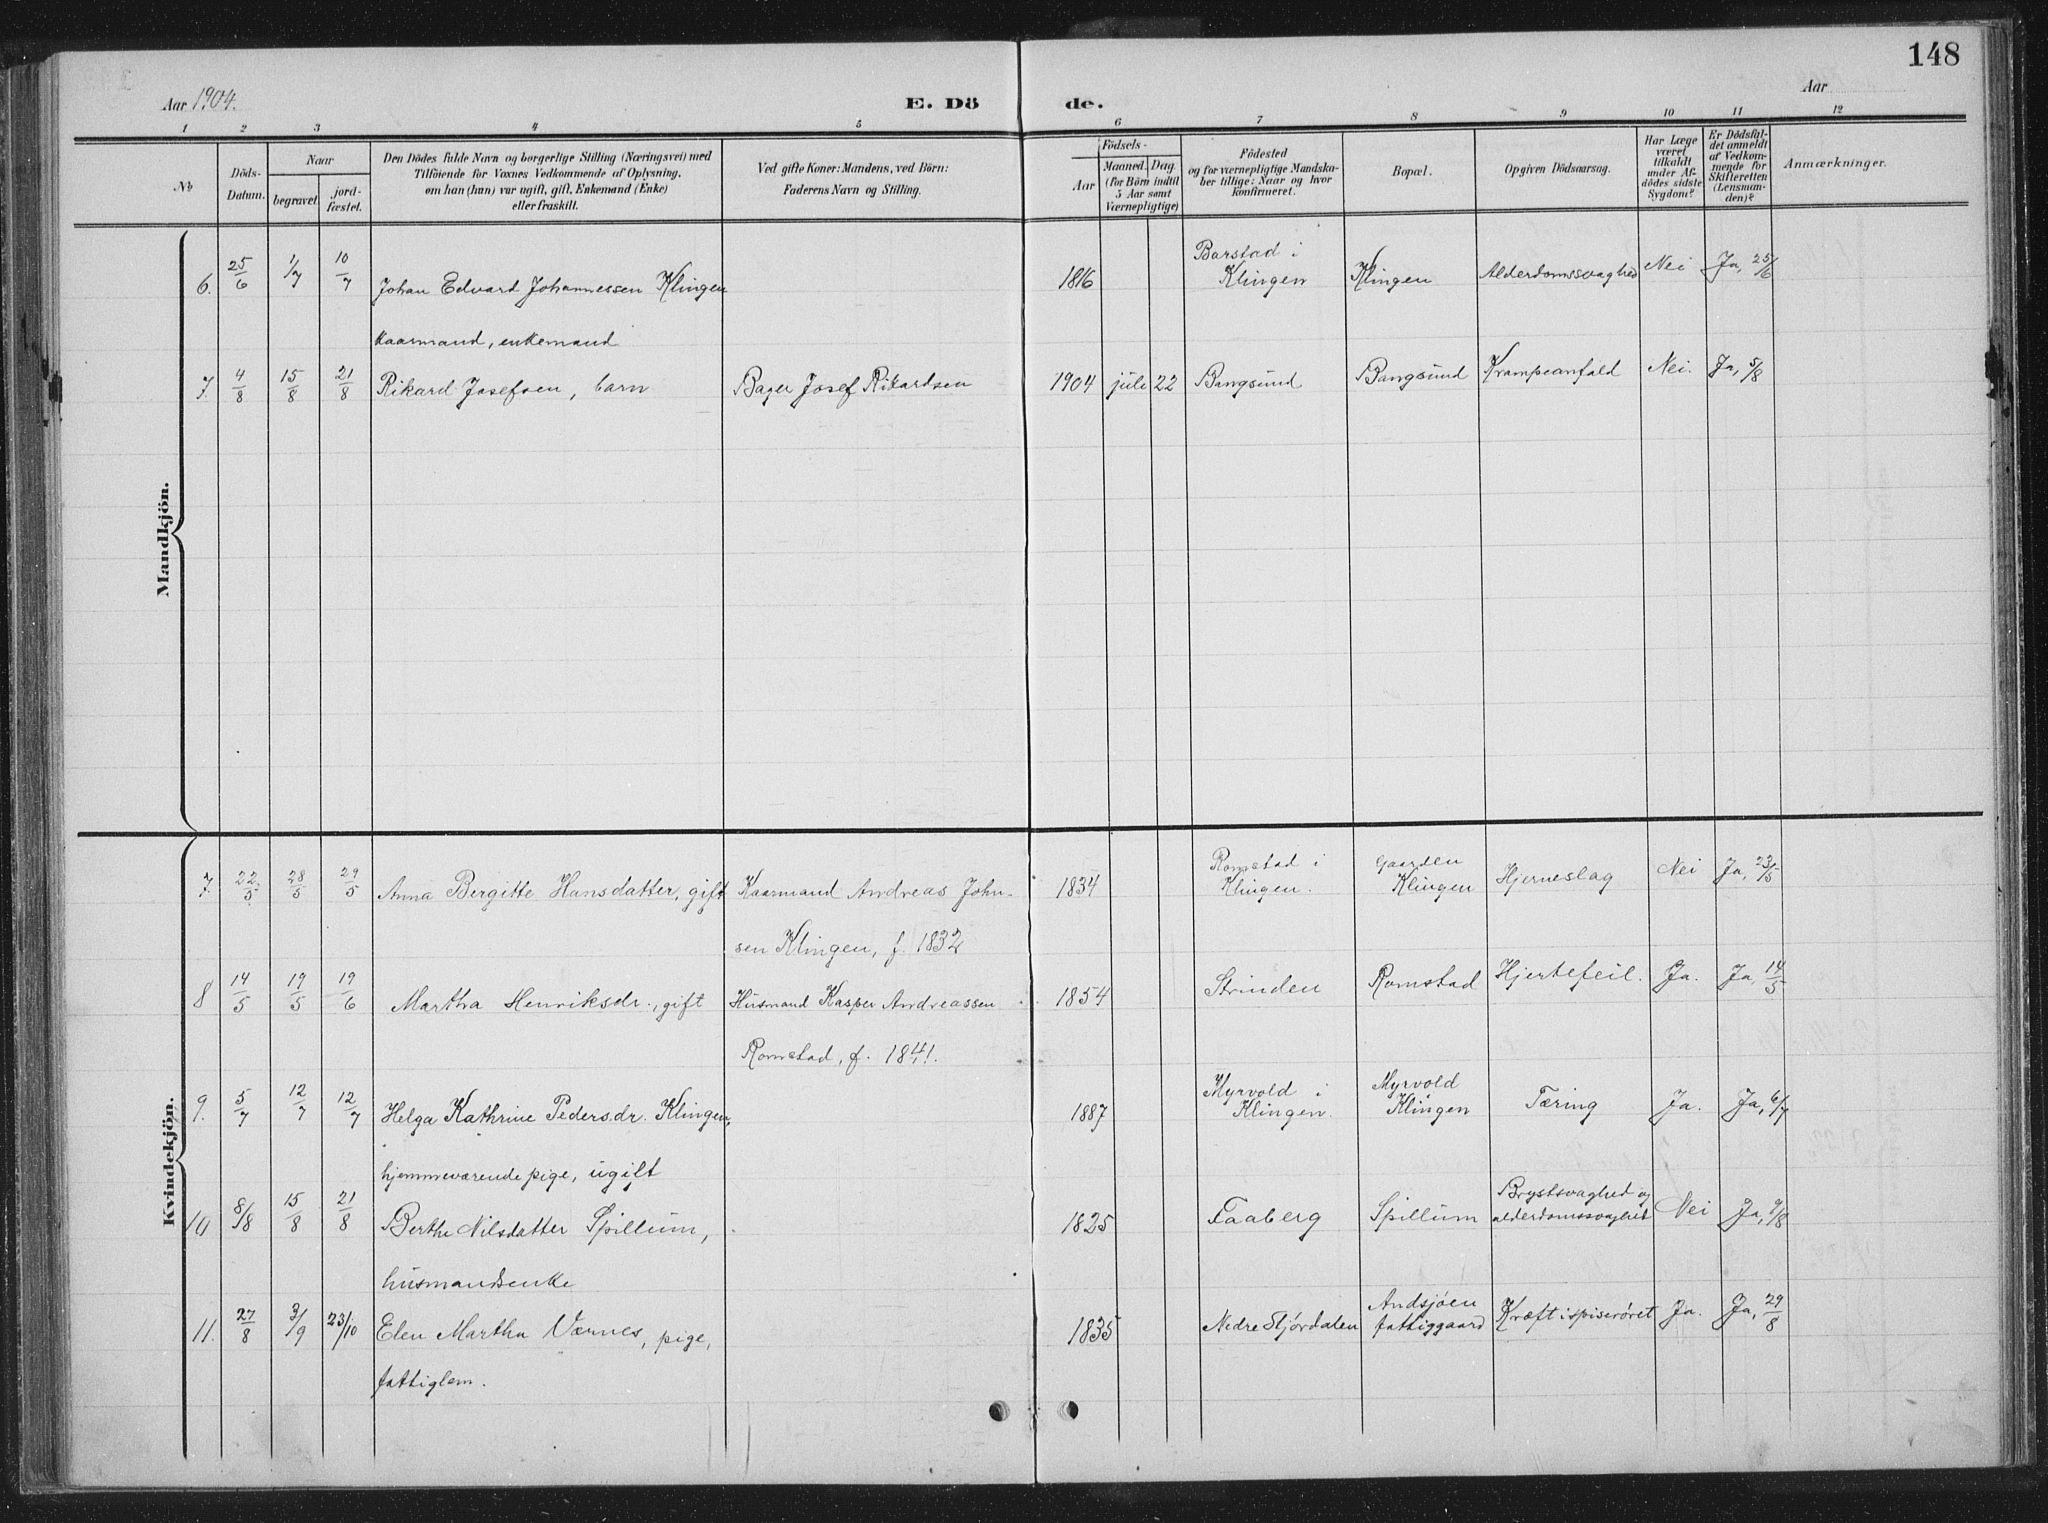 148
Aar 1904. E. Dö de. Aar
1 2 3 4 5 6 7 8 9 10 11 12
No
Döds-
Datum.
Naar
begravet.
jord-
fæstet.
Den Dödes fulde Navn og borgerlige Stilling (Næringsvei) med
Tilföiende for Voxnes Vedkommende af Oplysning,
om han (hun) var ugift, gift, Enkemand (Enke)
eller fraskilt.
Ved gifte Koner: Mandens, ved Börn:
Faderens Navn og Stilling.
Födsels-
Aar
Maaned. Dag.
(for Börn indtil
5 Aar samt
Værnepligtige)
Födested
og for værnepligtige Mandska-
ber tillige: Naar og hvor
konfirmeret.
Bopæl.
Opgiven Dödsaarsag.
Har Læge
været
tilkaldt
under Af-
dödes sidste
Sygdom?
Er Dödsfal-
det anmeldt
af Vedkom-
mende for
Skifteretten
(Lensman-
den)?
Anmærkninger.
Mandkjön.
6. 25/6 1/7 10/7 Johan Edvard Johannessen Klingen 1816 Barstad i Klingen Klingen Alderdomssvaghed Nei Ja, 25/6
kaarmand, enkemand
7. 4/8 15/8 21/8 Rikard Josefsen, barn Bager Josef Rikardsen 1904 juli 22 Bangsund Bangsund Krampeanfald Nei. Ja, 5/8
Kvindekjön.
7. 22/5 28/5 29/5 Anna Bergitte Hansdatter, gift Kaarmand Andreas John- 1834 Romstad i Klingen. Gaarden Klingen Hjerneslag Nei Ja, 23/5
sen Klingen, f. 1832
8 14/5 19/5 19/6 Martha Henriksdr., gift Husmand Kasper Andreassen 1854 Strinden Romstad Hjertefeil. Ja. Ja, 14/5
Romstad, f. 1841.
9. 5/7 12/7 12/7 Helga Kathrine Pedersdr. Klingen, 1887 Myrvold i Klingen. Myrvold Klingen Tæring Ja. Ja, 6/7
hjemmeværende pige, ugift
10 8/8 15/8 21/8 Berthe Nilsdatter Spillum, 1825 Faaberg Spillum Brystsvaghed og alderdomssvaghet Nei Ja, 9/8
husmandsenke
11. 27/8 3/9 23/10 Elen Martha Værnes, pige, 1835 Nedre Stjørdalen Andsjøen fattiggaard Kræft i spiserøret Ja. Ja, 29/8
fattiglem.